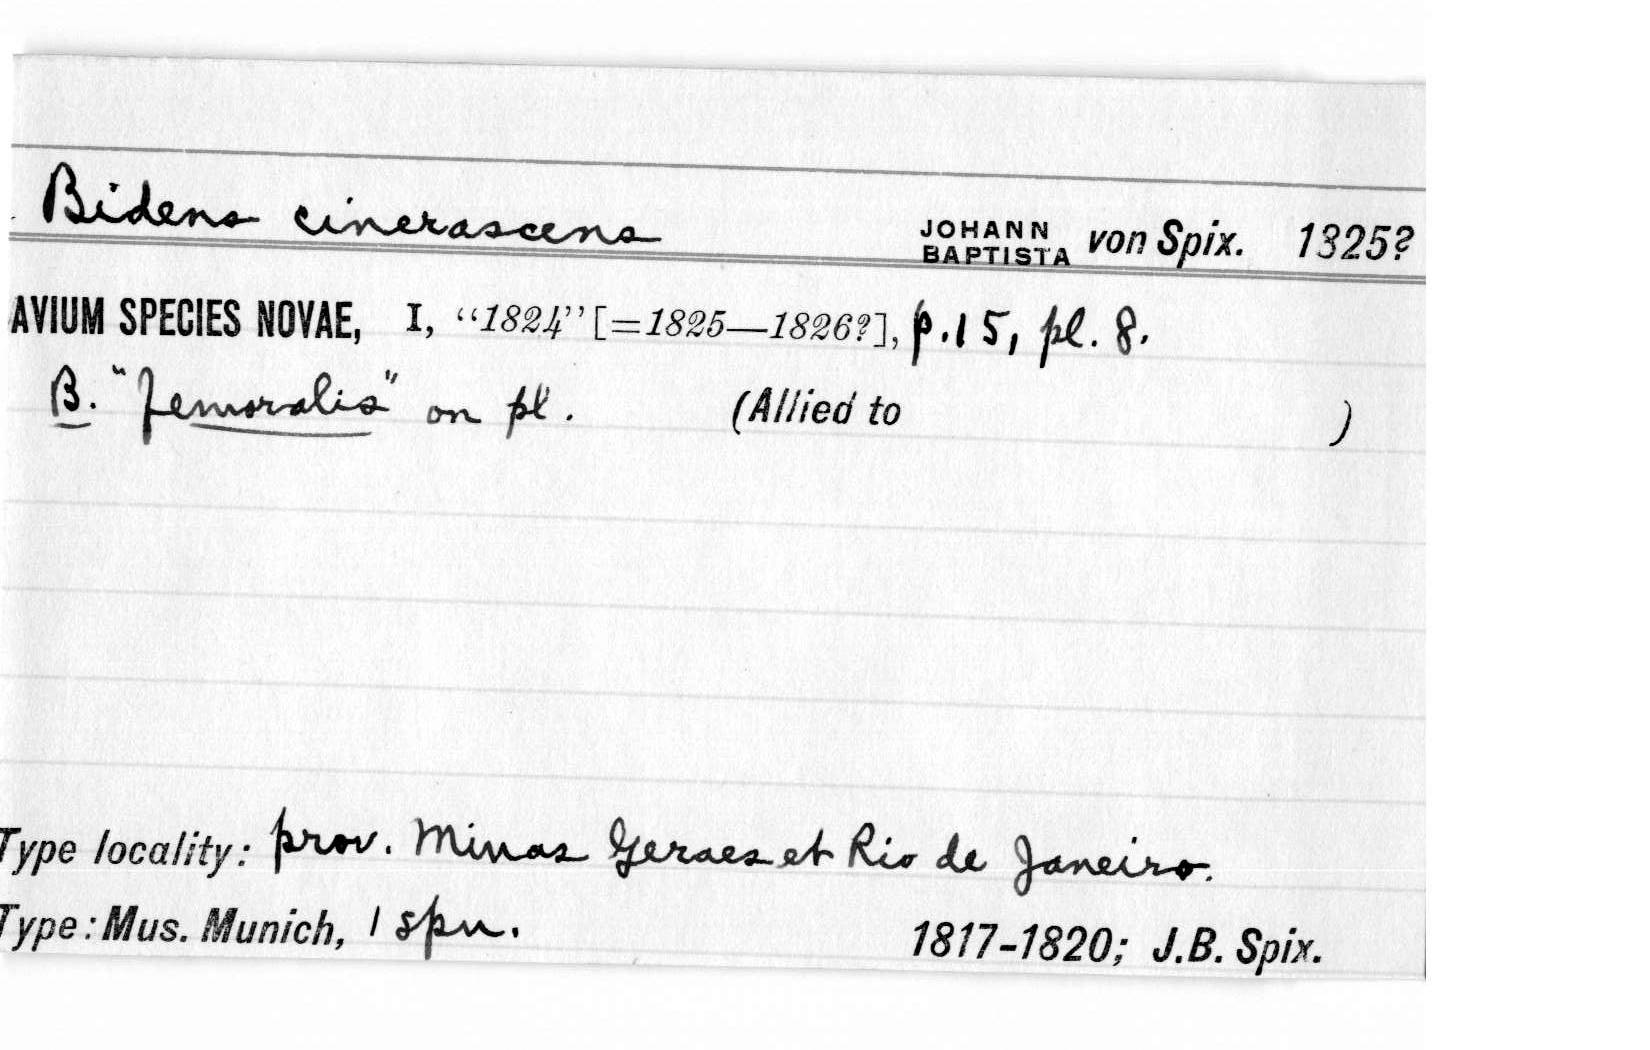 Bidens cinerascens JOHANN BAPTISTA von Spix. 1825?
AVIUM SPECIES NOVAE, I, “1824” [=1825—1826?], p.15, pl. 8.
B. "femoralis" on pl. (Allied to )
Type locality: prov. Minas Geraes et Rio de Janeiro.
Type: Mus. Munich, 1 spn. 1817-1820; J.B. Spix.